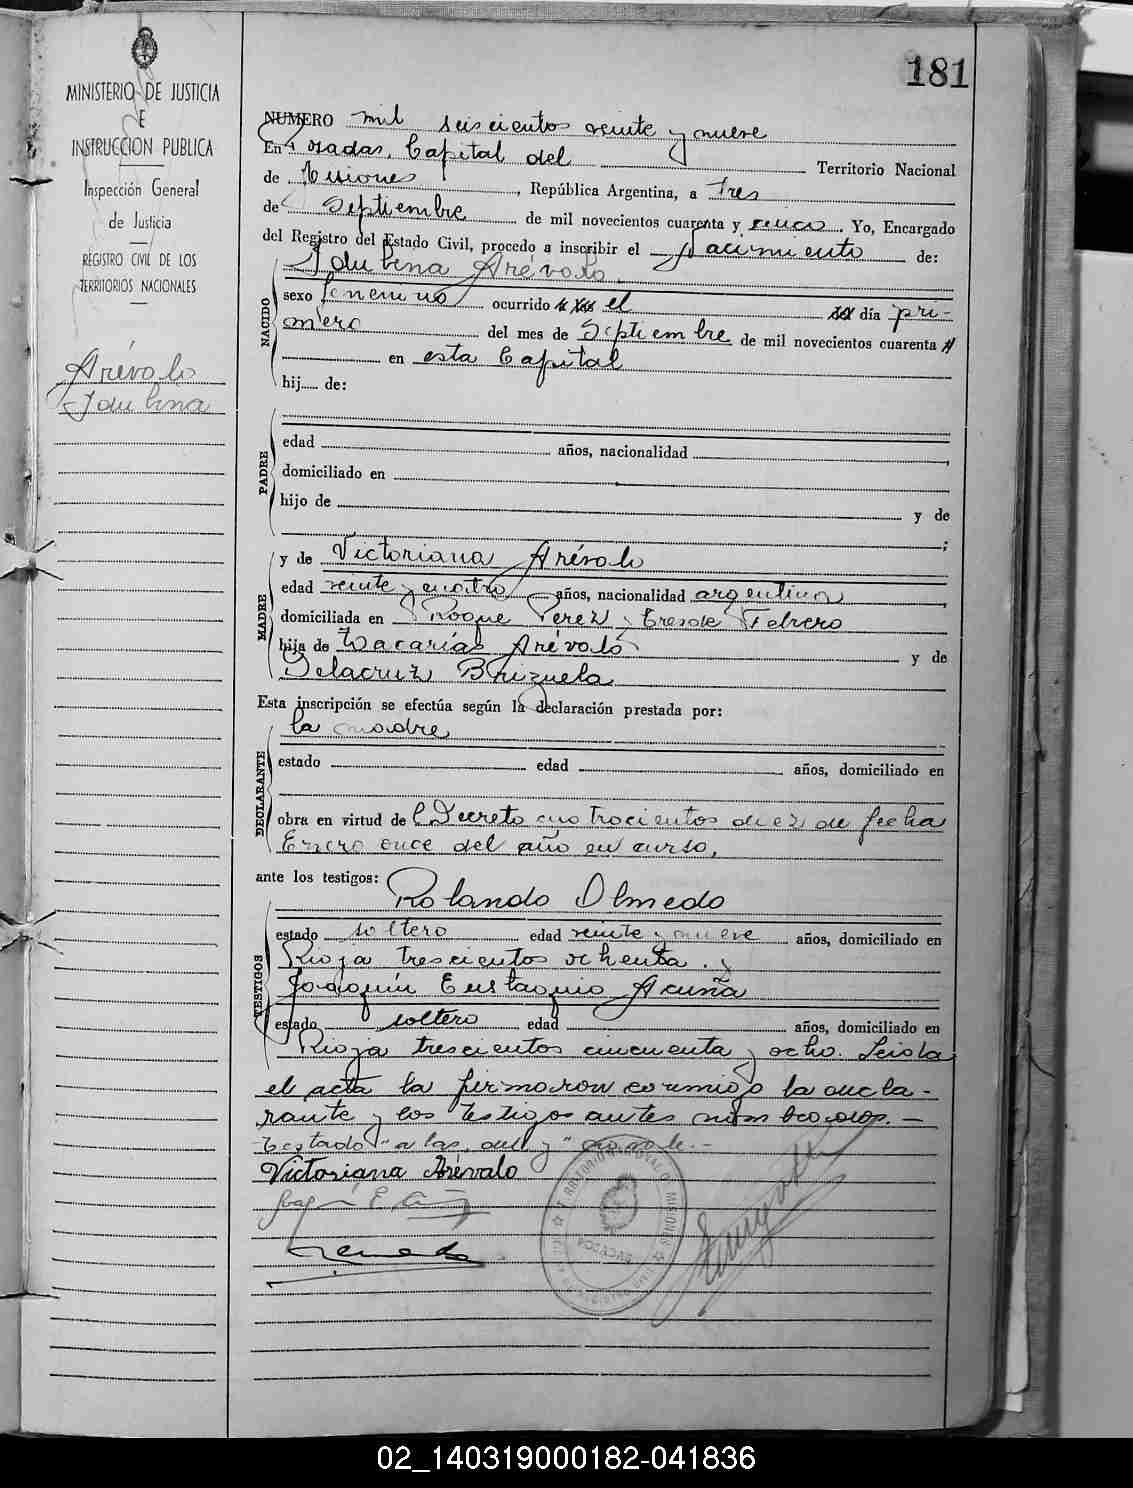 181
MINISTERIO DE JUSTICIA
E
INSTRUCCION PUBLICA
Inspección General
de Justicia
REGISTRO CIVIL DE LOS
TERRITORIOS NACIONALES
Arévalo
NUMERO mil seiscientos veinte y nueve
En Posadas, Capital del Territorio Nacional
de Misiones, República Argentina, a tres
de Septiembre de mil novecientos cuarenta y cinco. Yo, Encargado
del Registro del Estado Civil, procedo a inscribir el nacimiento de:
Arévalo
NACIDO
sexo femenino ocurrido el día pri-
mero del mes de Septiembre de mil novecientos cuarenta
en esta Capital
hij..... de:
PADRE
edad años, nacionalidad
domiciliado en
hijo de y de
;
MADRE
y de Victoriana Arévalo
edad veinte y cuatro años, nacionalidad argentina
domiciliada en Roque Perez y Tres de Febrero
hija de Zacarías Arévalo y de
Delacruz Brizuela
Esta inscripción se efectúa según la declaración prestada por:
la madre
DECLARANTE
estado edad años, domiciliado en
obra en virtud de Decreto cuatrocientos diez de fecha
Enero once del año en curso,
ante los testigos:
Rolando Olmedo
TESTIGOS
estado soltero edad veinte y nueve años, domiciliado en
Rioja trescientos ochenta. y
Joaquín Eustaquio Acuña
estado soltero edad años, domiciliado en
Rioja trescientos cincuenta y ocho. Leida
el acta la firmaron conmigo la decla-
rante y los testigos antes nombrados.-
Testado "a las, del y" no vale.-
Victoriana Arévalo
TERRITORIO NACIONAL DE MISIONES
02_140319000182-041836